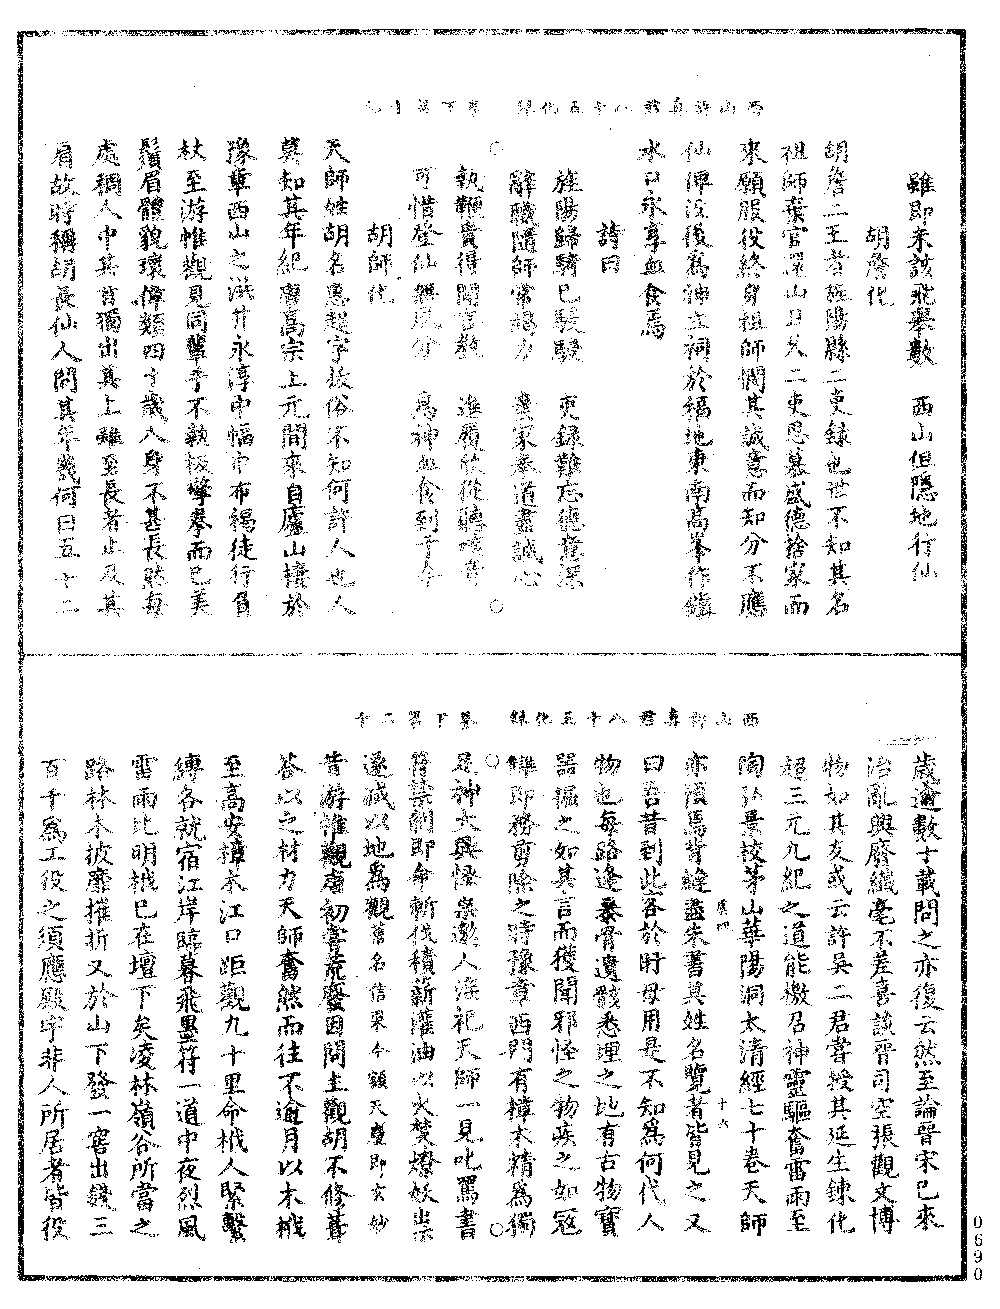 西山許真君八十五化錄 卷下第十九
雖即未該飛舉數 西山但隱地行仙
胡詹化
胡詹二王者旌陽縣二吏錄也世不知其名
祖師棄官還山日久二吏思慕盛德捨家而
來願服役終身祖師憫其誠意而知分不應
仙傳沒後為神立祠於福地東南高峯作鎮
水口永享血食焉
詩曰
旌陽歸騎已駸駸 吏錄難忘德愛深
辭職隨師常竭力 棄家奉道盡誠心
執鞭貴得聞言教 進履欣從聽
可惜登仙無夙分 為神血食到于今
胡師化
天師姓胡名惠超字拔俗不知何許人也人
莫知其年紀唐高宗上元間來自廬山棲於
豫章西山之洪井永淳中幅巾布褐徒行負
杖至游帷觀見同輩手不執板擎拳而已美
鬚眉體貌瓌偉類四十歲人身不甚長然每
處稠人中其首獨出其上雖至長者止及其
肩故時稱胡長仙人問其年幾何曰五十二
西山許真君八十五化錄 卷下第二十
歲逾數十載問之亦復云然至論晉宋已來
治亂興廢纖毫不差喜談晉司空張觀文博
物如其友或云許吳二君嘗授其延生鍊化
超三元九紀之道能檄召神靈驅奮雷雨至
陶弘景校茅山華陽洞太清經七十卷天師
虞四 十六
亦預焉皆縫盡朱書其姓名覽者皆見之又
曰吾昔到此各於肝母用是不知為何代人
物也每路逢暴骨遺骸悉埋之地有古物寶
器掘之如其言而獲聞邪怪之物疾之如冦
讎即務剪除之時豫章西門有樟木精為獨
足神大興怪祟邀人淫祀天師一見叱罵書
符禁制即命斬伐積薪灌油以火焚燎妖祟
遂滅以地為觀舊名信果今額天慶即玄妙
昔游帷觀唐初寖荒廢因問主觀胡不修葺
荅以乏材力天師奮然而往不逾月以木栰
至高安樟木江口距觀九十里命栰人緊繫
縛各就宿江岸臨暮飛墨符一道中夜烈風
雷雨比明栰已在壇下矣凌林嶺谷所當之
路林木披靡摧折又於山下發一窖出錢三
百千為工役之須應殿宇非人所居者皆役
0690